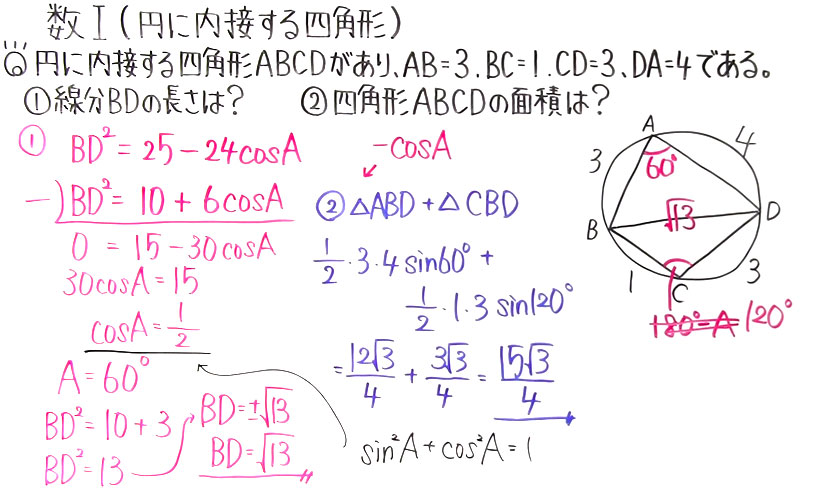 数I(円に内接する四角形)
◎円に内接する四角形ABCDがあり、AB=3、BC=1、CD=3、DA=4である。
①線分BDの長さは? ②四角形ABCDの面積は?
① BD²=25-24cosA
-)BD²=10+6cosA
0=15-30cosA
30cosA=15
cosA=1/2
A=60°
BD²=10+3
BD²=13
BD=±√13
BD=√13
-cosA
②△ABD+△CBD
1/2・3・4sin60°+
1/2・1・3sin120°
=12√3/4+3√3/4=15√3/4
sin²A+cos²A=1
A
3
4
60°
√13
B
D
1
C
3
180°-A 120°